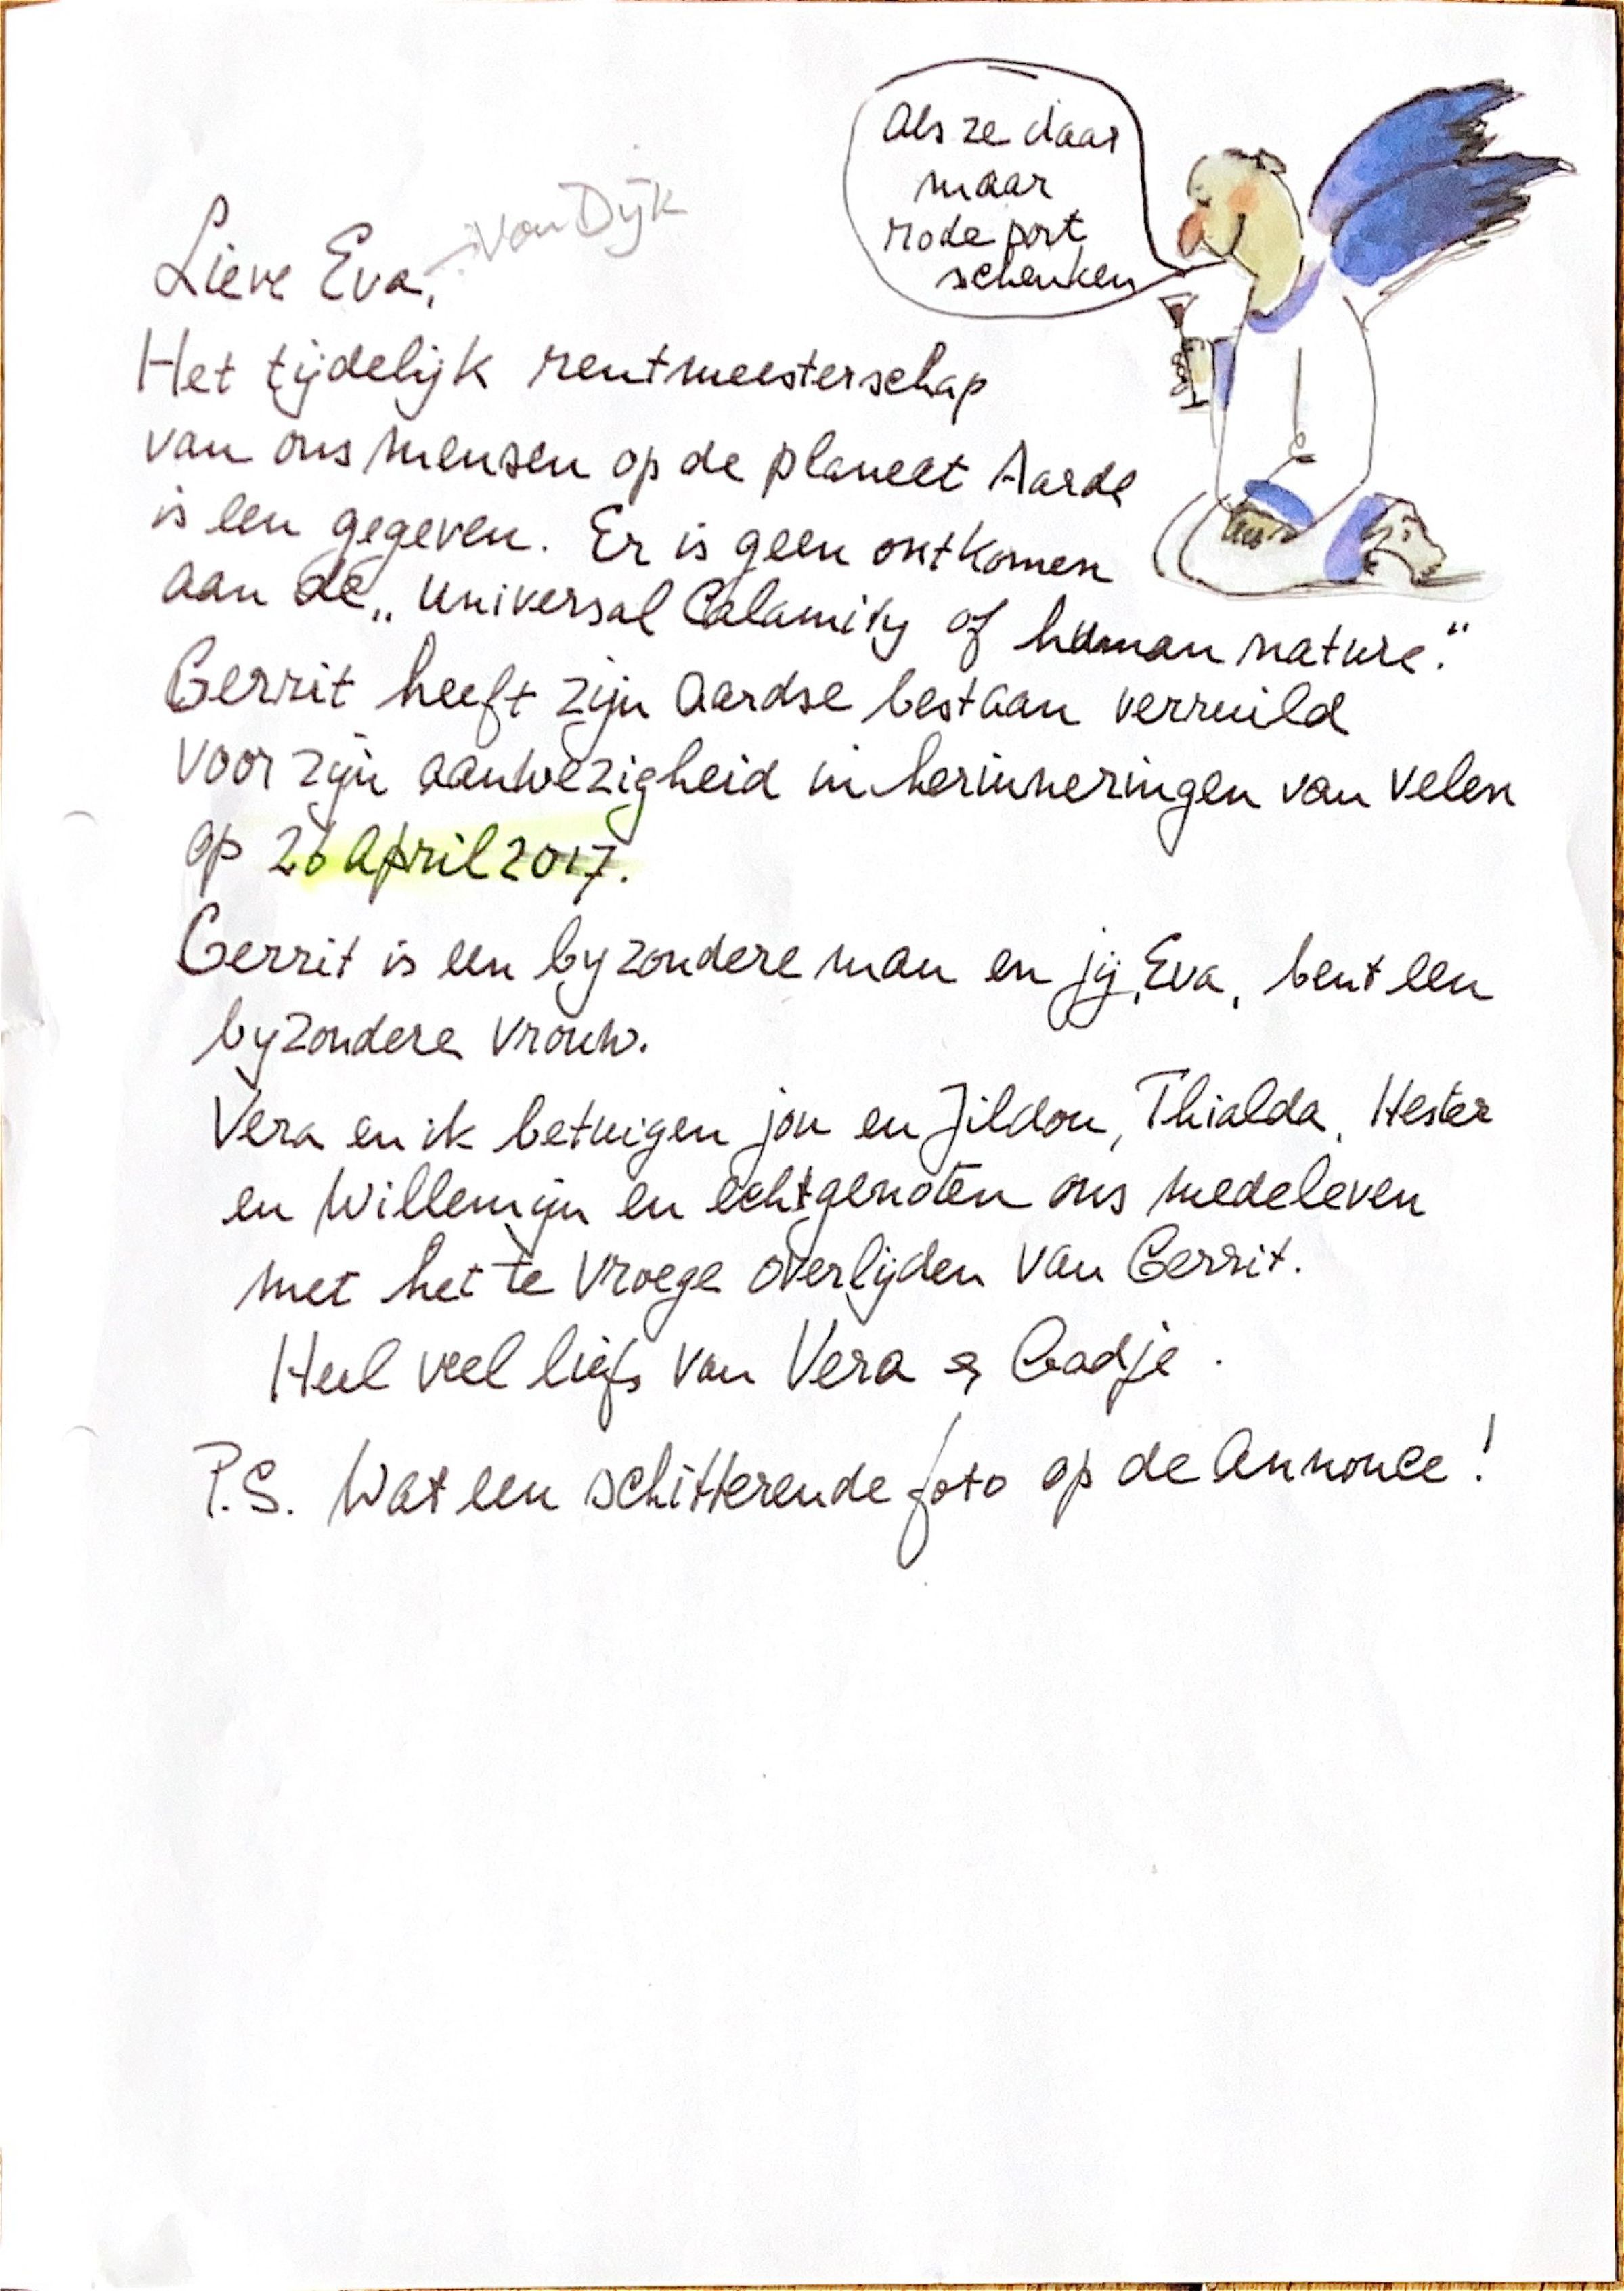 Als ze daar
maar
rode port
schenken
van Dijk
Lieve Eva,
Het tijdelijk rentmeesterschap
van ons mensen op de planeet Aarde
is een gegeven. Er is geen ontkomen
aan de „Universal Calamity of human nature."
Gerrit heeft zijn aardse bestaan verruild
voor zijn aanwezigheid in herinneringen van velen
op 26 april 2017.
Gerrit is een byzondere man en jij, Eva, bent een
byzondere vrouw.
Vera en ik betuigen jou en Jildou, Thialda, Hester
en Willemijn en echtgenoten ons medeleven
met het te vroege overlijden van Gerrit.
Heel veel liefs van Vera & Gadje.
P.S. Wat een schitterende foto op de annonce!